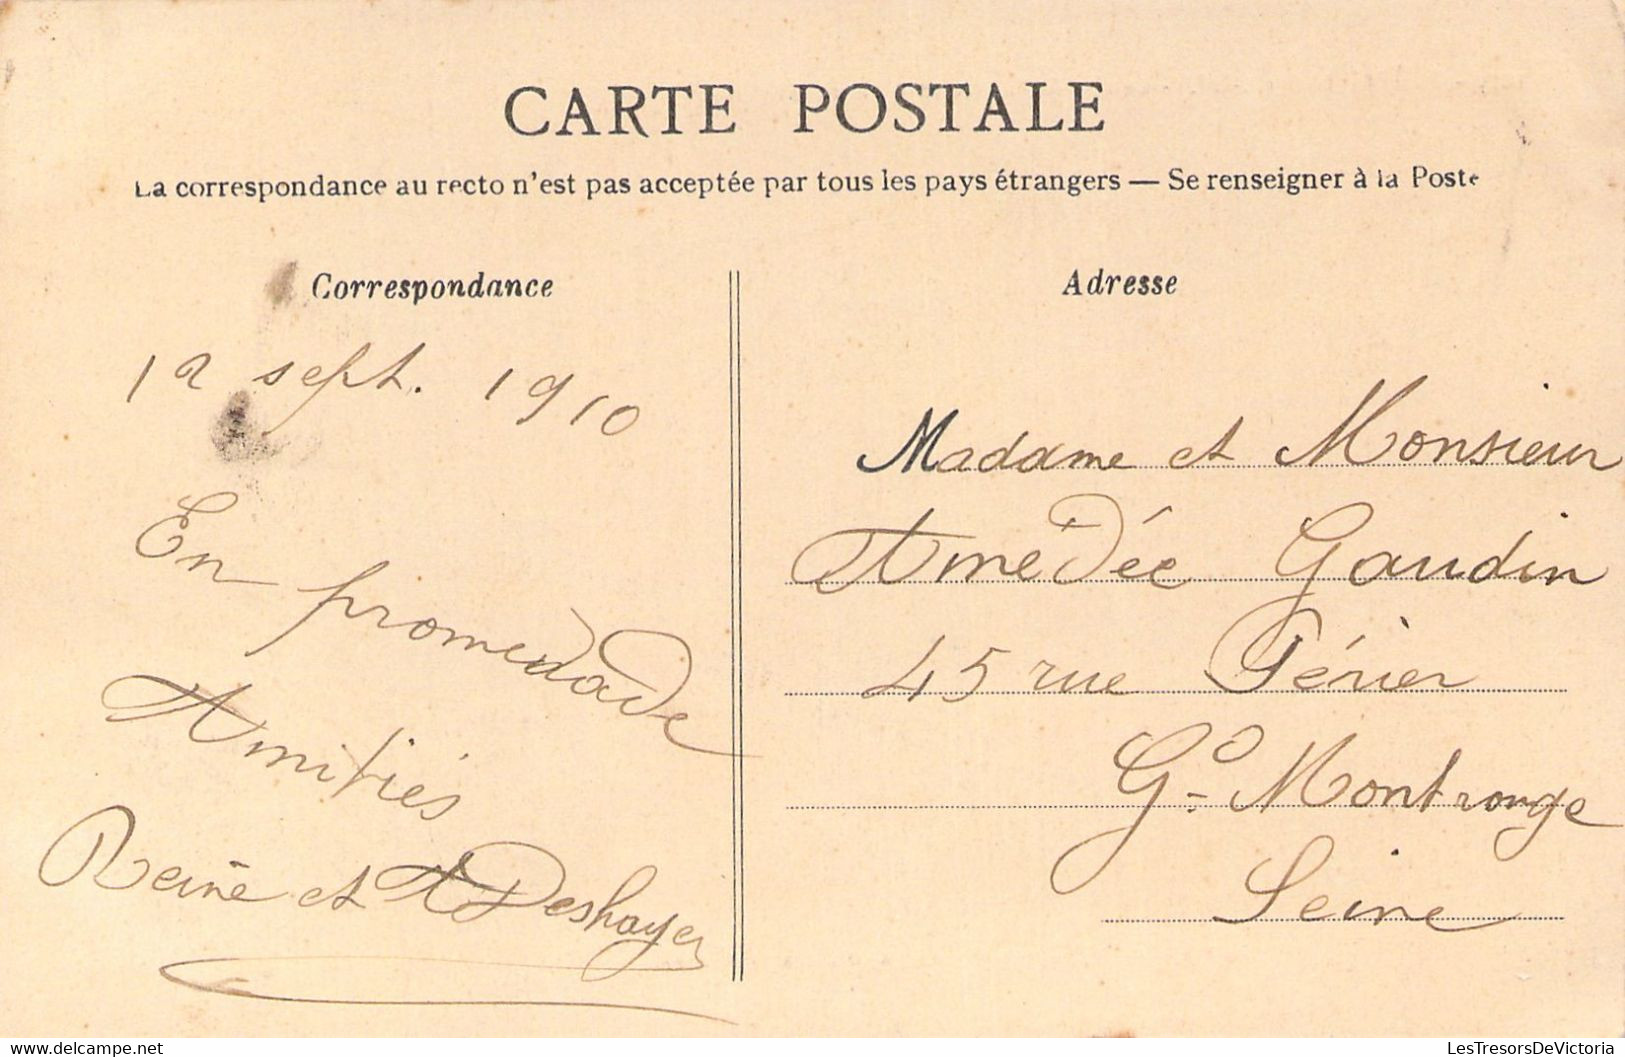 CARTE POSTALE
La correspondance au recto n'est pas acceptée par tous les pays étrangers — Se renseigner à la Poste
Correspondance
12 sept. 1910
En promenade
Amitiés
Reine et A Deshayes
Adresse
Madame et Monsieur
Amedée Gaudin
45 rue Périer
Gd Montrouge
Seine
Les Tresors De Victoria
LesTresorsDeVictoria